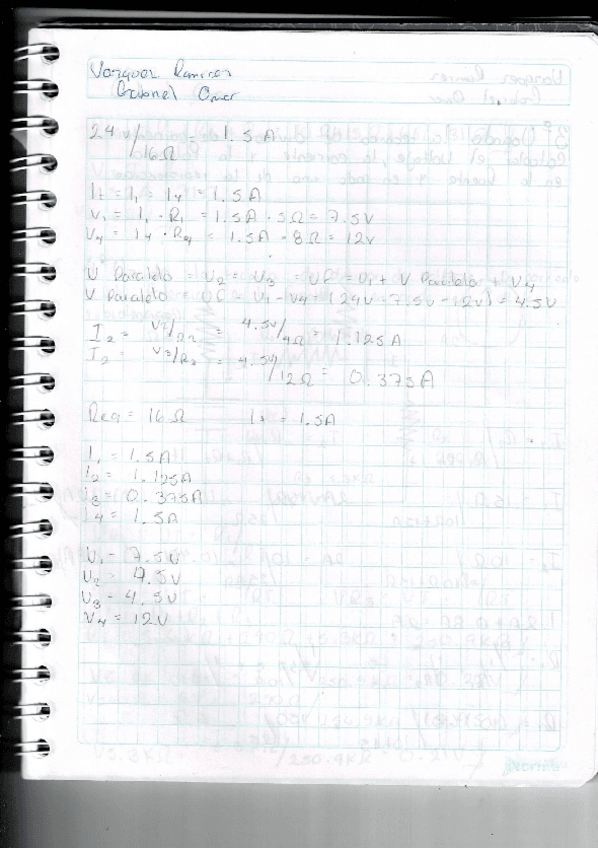 Vazquez Ramirez
Gabriel Omar
24/16Ω = 1.5A
It = I1 = I4 = 1.5A
V1 = I1 · R1 = 1.5A · 5Ω = 7.5V
V4 = I4 · R4 = 1.5A - 8Ω = 12V
V Paralelo = V2 = V3 = VF = V1 + V Paralelo + V4
V Paralelo = VF - V1 - V4 = (24V - 7.5V - 12V) = 4.5V
I2 = V2/R2 = 4.5V/4Ω = 1.125A
I2 = V3/R3 = 4.5V/12Ω = 0.375A
Req = 16Ω It = 1.5A
I1 = 1.5A
I2 = 1.125A
I3 = 0.375A
I4 = 1.5A
V1 - 7.5V
V2 = 4.5V
V3 - 4.5V
V4 = 12V